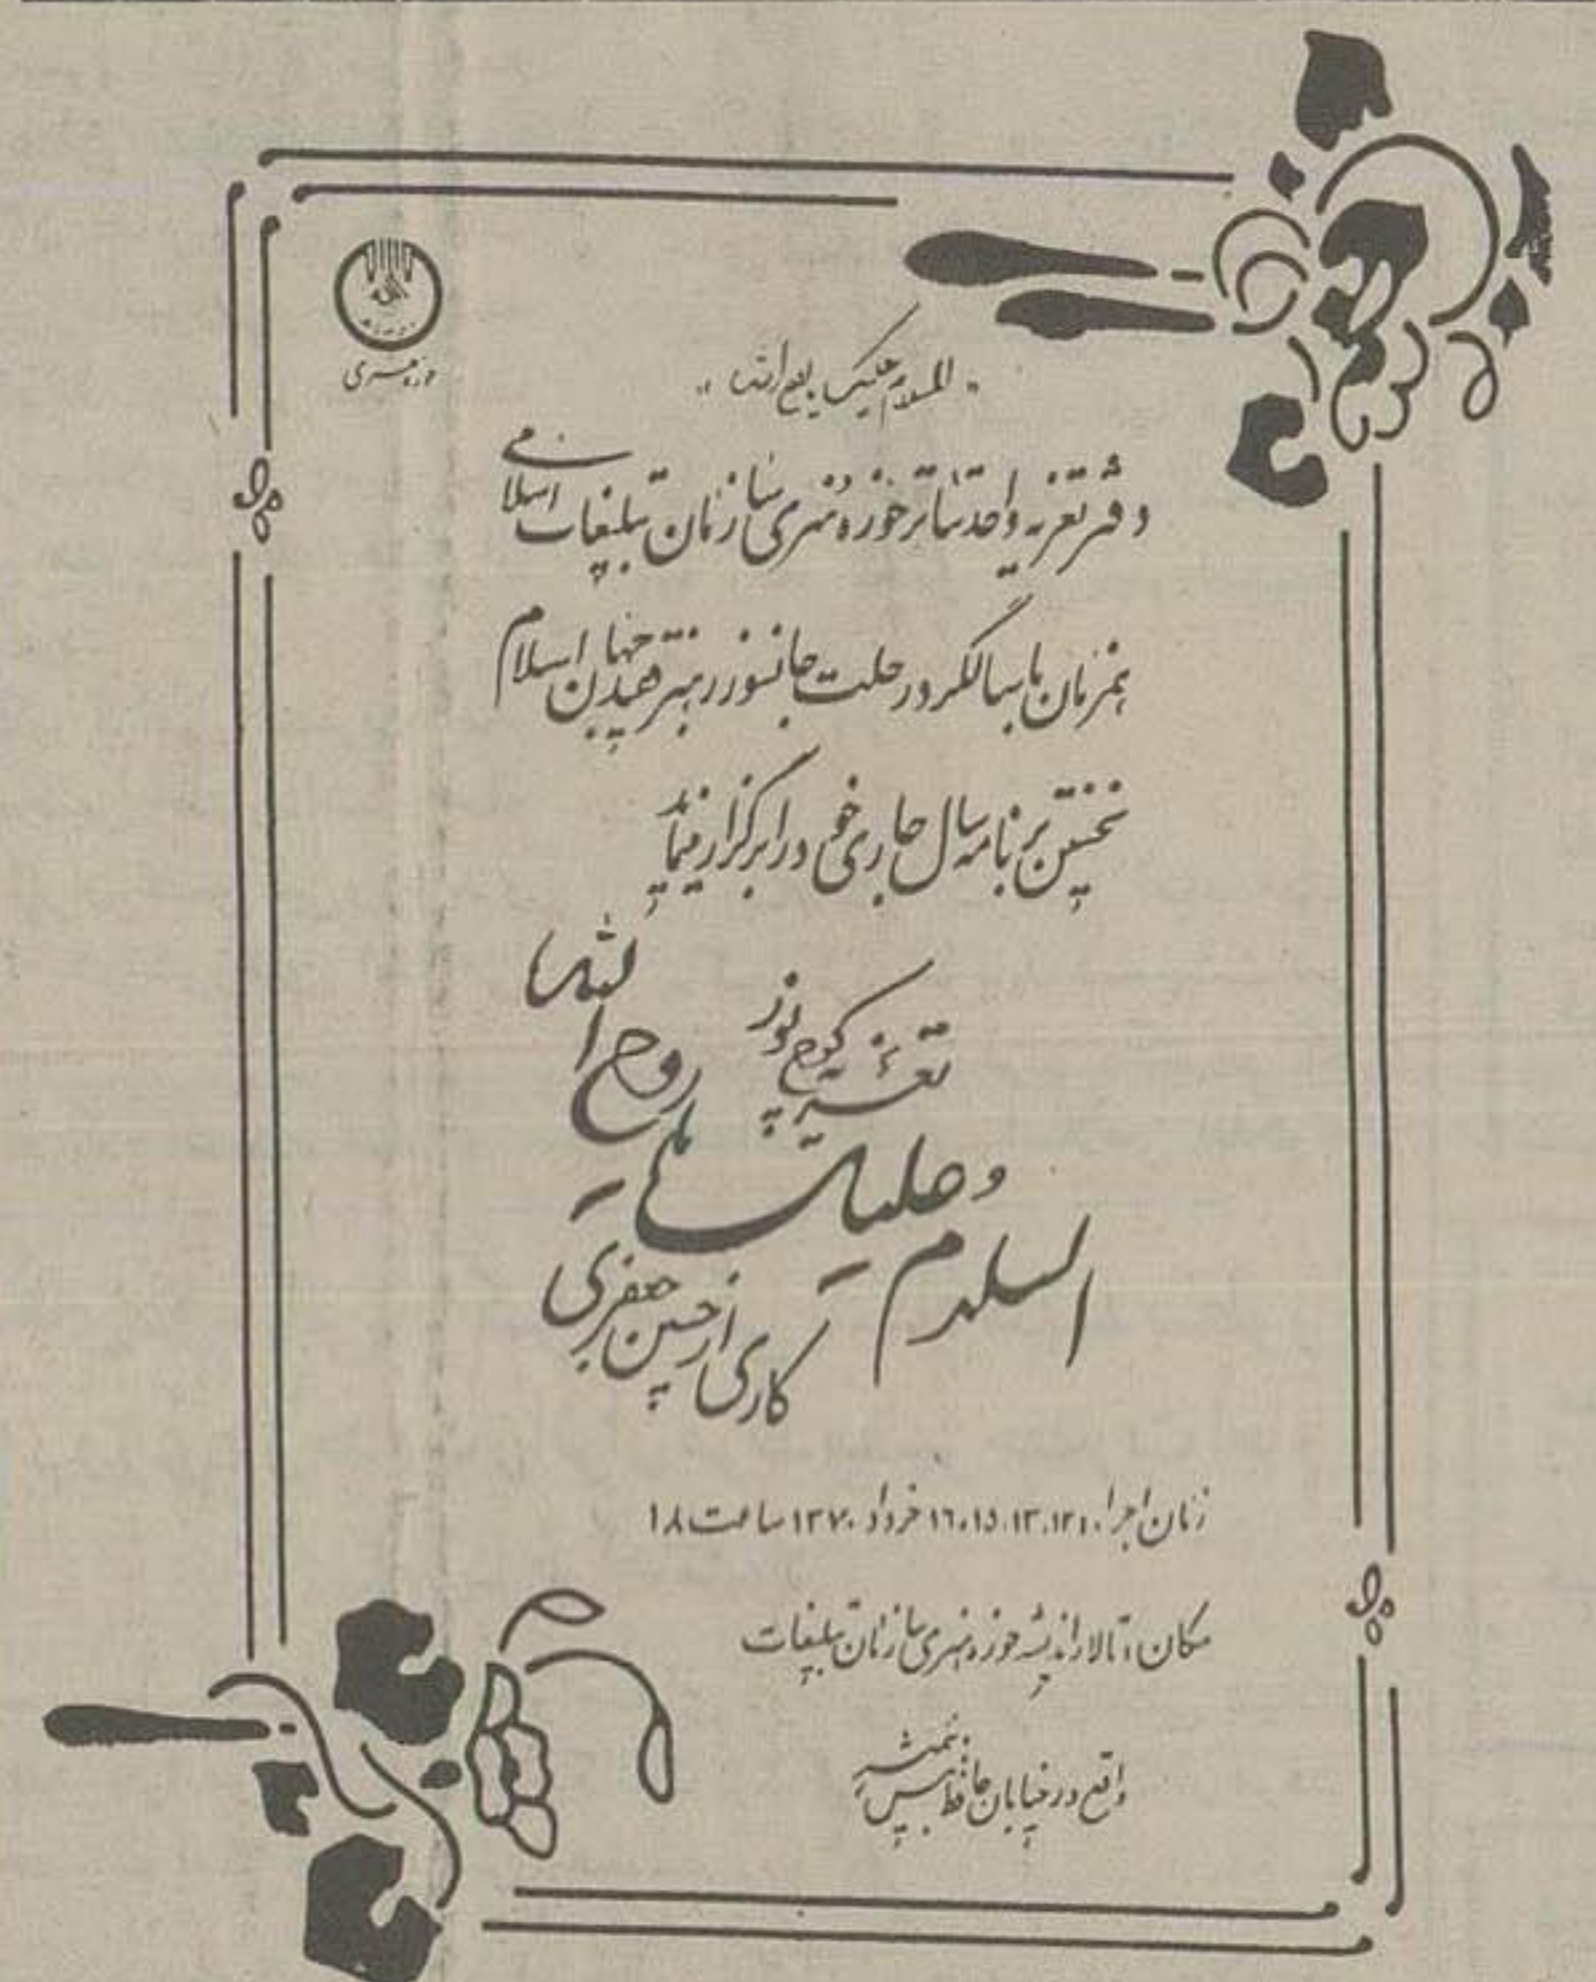 حوزه هنری
«السلام علیک یا روح الله»
دفتر تعزیه واحد تئاتر حوزه هنری سازمان تبلیغات اسلامی
همزمان با سالگرد رحلت جانسوز رهبر جهان اسلام
نخستین برنامه سال جاری خود را برگزار مینماید
تعزیه کوچ نور
و علیک
السلام
یا روح الله
کاری از حسین جعفری
زمان اجرا: ۱۲، ۱۳، ۱۵، ۱۶ خرداد ۱۳۷۰ ساعت ۱۸
مکان: تالار اندیشه حوزه هنری سازمان تبلیغات
واقع در خیابان حافظ